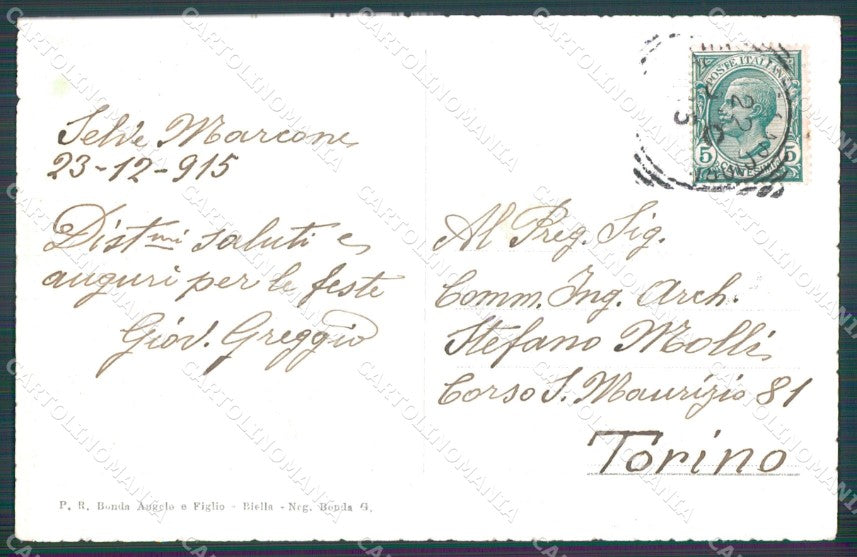 Selve Marcone
23-12-915
Dist.mi saluti e
auguri per le feste
Giov. Greggio
P. R. Bonda Angelo e Figlio - Biella - Neg. Bonda G.
POSTE ITALIANE
5 5
Al Preg. Sig.
Comm. Ing. Arch.
Stefano Molli
Corso S. Maurizio 81
Torino
CARTOLINOMANIA